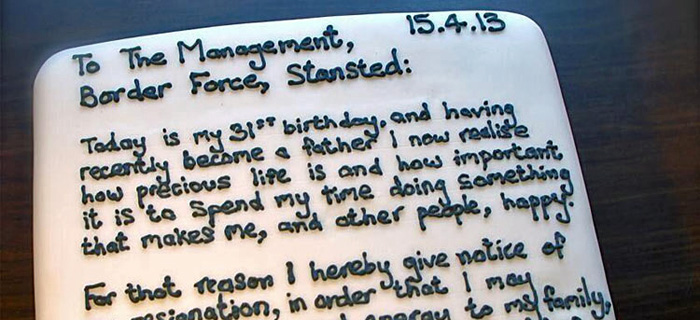 15.4.13
To The Management,
Border Force, Stansted:
Today is my 31st birthday, and having
recently become a father I now realise
how precious life is and how important
it is to spend my time doing something
that makes me, and other people, happy.
For that reason I hereby give notice of
resignation, in order that I may
energy to my family,